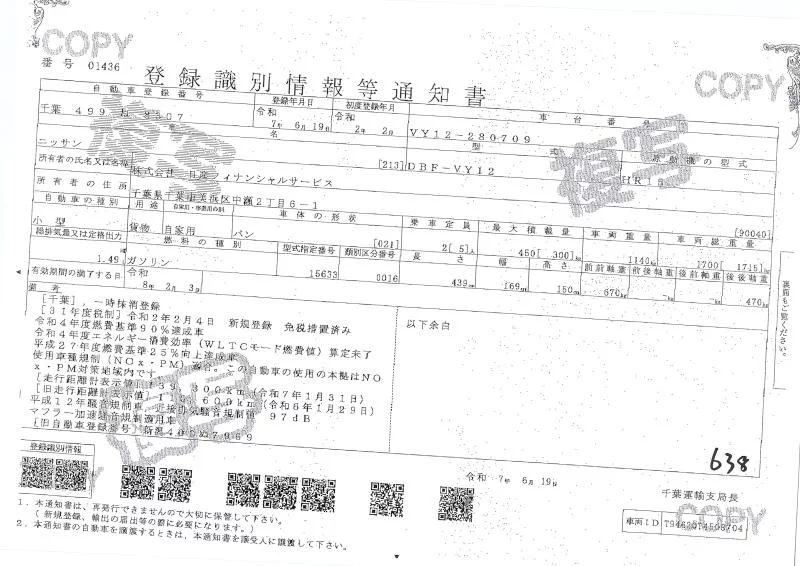 COPY
番号 01436
登録識別情報等通知書
COPY
自動車登録番号 登録年月日 初度登録年月 車台番号
千葉 499 令和 7年 6月19日 令和 2年 2月 VY12-280709
名 型式 原動機の型式
ニッサン [213] DBF-VY12 HR15
所有者の氏名又は名称 株式会社 日産フィナンシャルサービス
所有者の住所 千葉県千葉市美浜区中瀬2丁目6-1
自動車の種別 用途 自家用・事業用の別 車体の形状 乗車定員 最大積載量 車両重量 車両総重量
小型 貨物 自家用 バン [021] 2[ 5]人 450[ 300]kg 1140kg 1700[ 1715]kg [90040]
総排気量又は定格出力 燃料の種別 型式指定番号 類別区分番号 長さ 幅 高さ 前前軸重 前後軸重 後前軸重 後後軸重
1.49 ガソリン 15633 0016 439cm 169cm 150cm 670kg -kg -kg 470kg
有効期間の満了する日 令和 8年 2月 3日
備考
[千葉],一時抹消登録
[31年度税制]令和2年2月4日 新規登録 免税措置済み
令和4年度燃費基準90%達成車
令和4年度エネルギー消費効率(WLTCモード燃費値)算定未了
平成27年度燃費基準25%向上達成車
使用車種規制(NOx・PM)適合。この自動車の使用の本拠はNO
x・PM対策地域内です。
[走行距離計表示値] 300km(令和7年1月31日)
[旧走行距離計表示値] 600km(令和6年1月29日)
平成12年騒音規制車、近接排気騒音規制値 97dB
マフラー加速騒音規制適用車
[旧自動車登録番号]新潟400ぬ7969
以下余白
裏面もご覧ください。
登録識別情報
638
令和 7年 6月 19日
千葉運輸支局長
車両ID T94620T4508704
COPY
1.本通知書は、再発行できませんので大切に保管して下さい。
(新規登録、輸出の届出等の際に必要になります。)
2.本通知書の自動車を譲渡するときは、本通知書を譲受人に譲渡して下さい。
複写
複写
複写